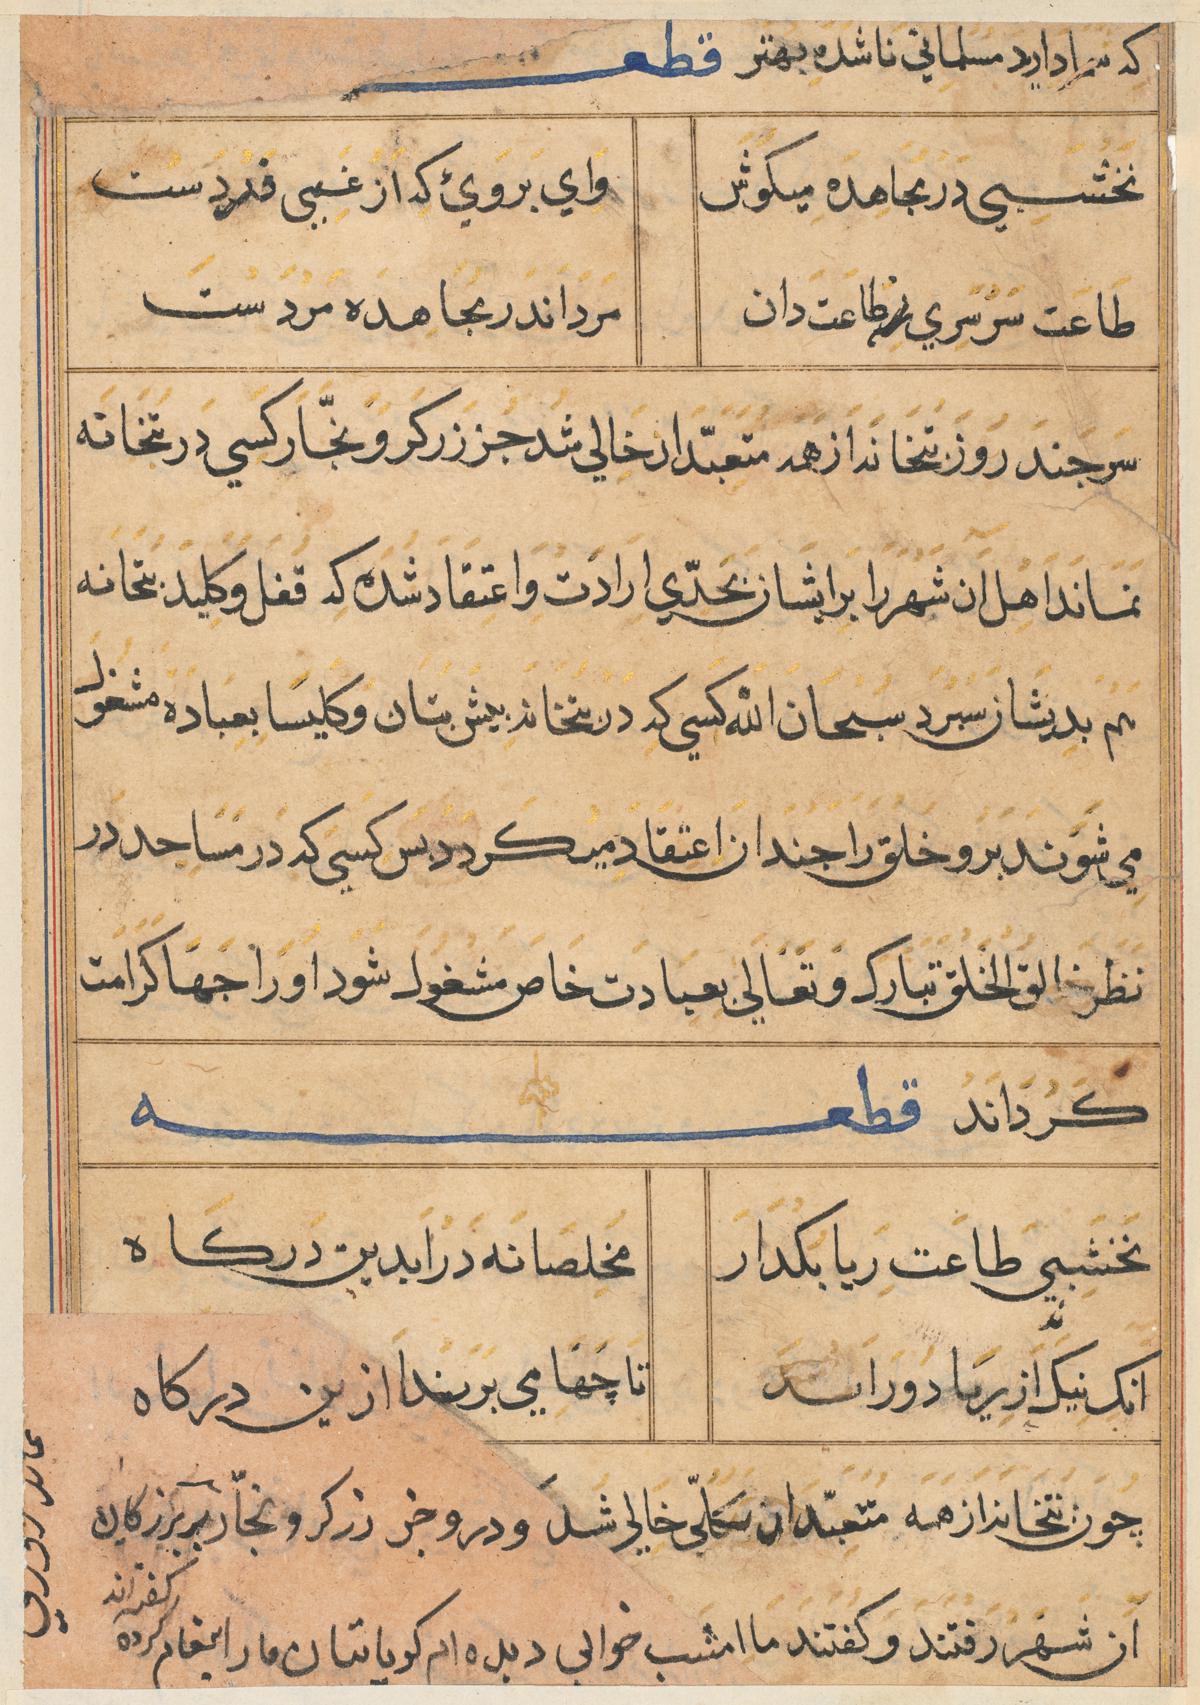 که سر ادارد مسلمانی ناشده بهتر قطعه
نخشبی در مجاهده میکوش وای بر وئ که از غیبی فردست
طاعت سرسری نه طاعت دان مرد اندر مجاهده مردست
سر جند روز بتخانه از همه متعبّدان خالی شد جز زرکر و نجّار کسی در بتخانه
نماند اهل آن شهر را بر ایشان بحدّی ارادت و اعتقاد شده که قفل و کلید بتخانه
هم بدیشان سبرد سبحان الله کسی که در بتخانه بیش بتان و کلیسا بعباده مشغول
می شوند برو خلق را جندان اعتقاد میکردد بس کسی که در مساجد در
نظر خالق الخلق تبارک و تعالی بعبادت خاص مشغول شود او را جها کرامت
کرداند قطعه
نخشبی طاعت ریا بکدار مخلصانه در ابدین درکاه
انک نیک از ریا دور اند تا چها می برند ازین درکاه
چون بتخانه از همه متعبّدان بکلّی خالی شد و درو جز زرکر و نجّار بر بزرکان
آن شهر رفتند و کفتند ما امشب خوابی دیده ام کویا بتان ما را بیغام کرده
کفته اند